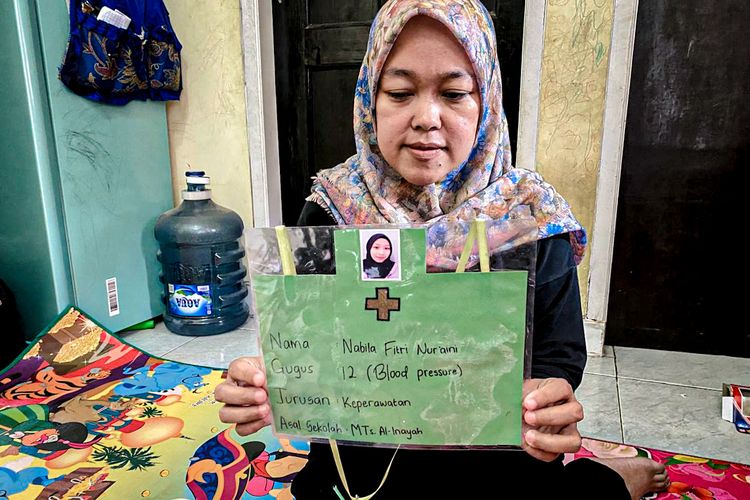 AQUA
Nama : Nabila Fitri Nur'aini
Gugus : 12 (Blood pressure)
Jurusan : Keperawatan
Asal Sekolah : MTs. Al-Inayah